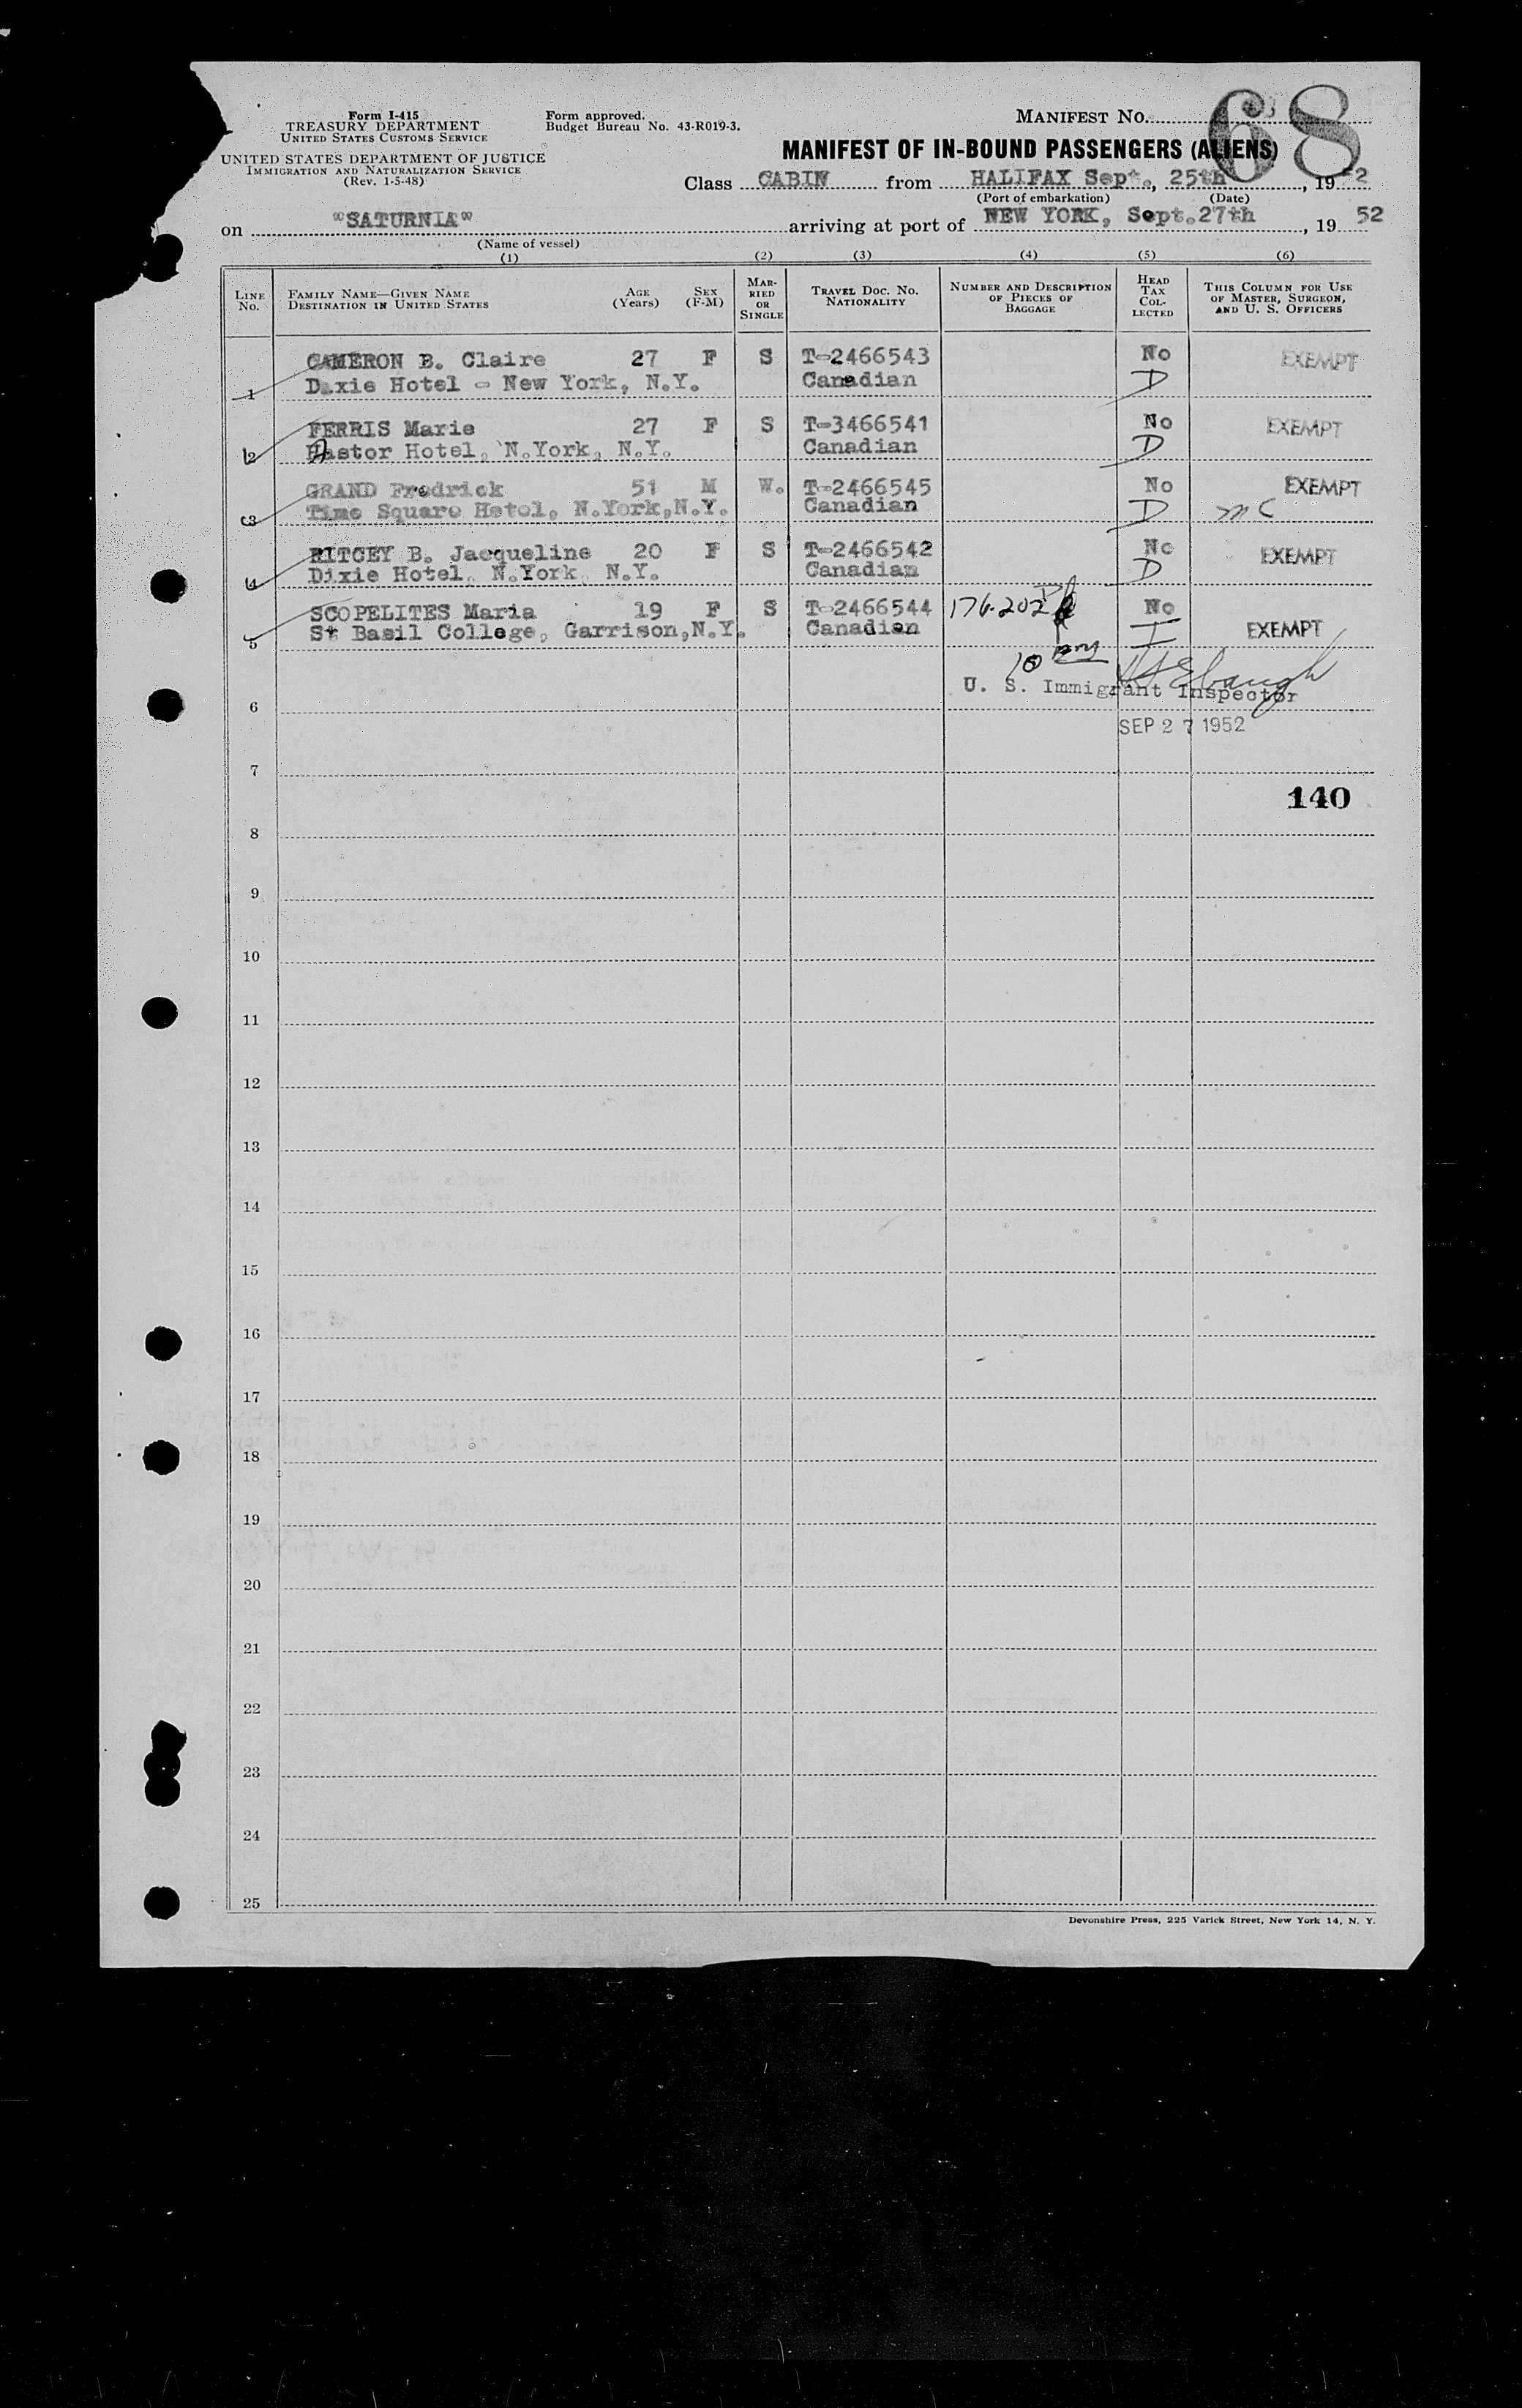 Form I-415
TREASURY DEPARTMENT
UNITED STATES CUSTOMS SERVICE
UNITED STATES DEPARTMENT OF JUSTICE
IMMIGRATION AND NATURALIZATION SERVICE
(Rev. 1-5-48)
Form approved.
Budget Bureau No. 43-R019-3.
MANIFEST No. 68
MANIFEST OF IN-BOUND PASSENGERS (ALIENS)
Class CABIN from HALIFAX Sept., 25th, 1952
(Port of embarkation) (Date)
on "SATURNIA" arriving at port of NEW YORK, Sept.27th, 19 52
(Name of vessel)
(1) (2) (3) (4) (5) (6)
LINE No. FAMILY NAME—GIVEN NAME DESTINATION IN UNITED STATES AGE (Years) SEX (F-M) MARRIED OR SINGLE TRAVEL DOC. NO. NATIONALITY NUMBER AND DESCRIPTION OF PIECES OF BAGGAGE HEAD TAX COLLECTED THIS COLUMN FOR USE OF MASTER, SURGEON, AND U. S. OFFICERS
CAMERON B. Claire 27 F S T-2466543 No EXEMPT
1 Dixie Hotel - New York, N.Y. Canadian D
FERRIS Marie 27 F S T-3466541 No EXEMPT
2 Astor Hotel, N.York, N.Y. Canadian D
GRAND Fredrick 51 M W. T-2466545 No EXEMPT
3 Time Square Hotel, N.York,N.Y. Canadian D mc
RITCEY B. Jacqueline 20 F S T-2466542 No EXEMPT
4 Dixie Hotel, N.York, N.Y. Canadian D
SCOPELITES Maria 19 F S T-2466544 176.202 No
5 St Basil College, Garrison,N.Y. Canadian I EXEMPT
U. S. Immigrant Inspector
6
SEP 27 1952
7
140
8
9
10
11
12
13
14
15
16
17
18
19
20
21
22
23
24
25
Devonshire Press, 225 Varick Street, New York 14, N. Y.